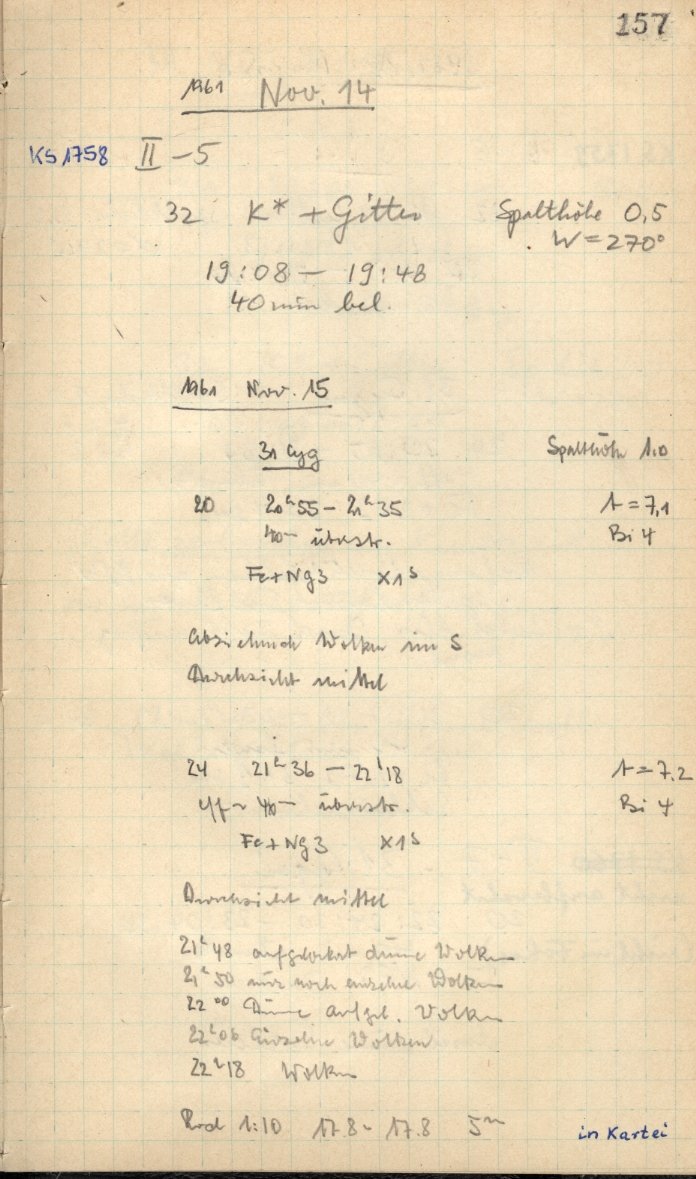 157
1961 Nov. 14
KS 1758 II - 5
32 K* + Gitter Spalthöhe 0,5
W = 270°
19:08 - 19:48
40 min bel.
1961 Nov. 15
31 Cyg Spalthöhe 1.0
20 20h 55 - 21h 35 t = 7,1
40m überstr. Bi 4
Fe + Ng 3 x 1s
abziehende Wolken im S
Durchsicht mittel
24 21h 36 - 22h 18 t = 7.2
eff ~ 40m überstr. Bi 4
Fe + Ng 3 x 1s
Durchsicht mittel
21h 48 aufgelockert dünne Wolken
21h 50 nur noch einzelne Wolken
22 00 Dünne aufgel. Wolken
22h 06 Einzelne Wolken
22h 18 Wolken
1:10 17.8 - 17.8 5m
in Kartei